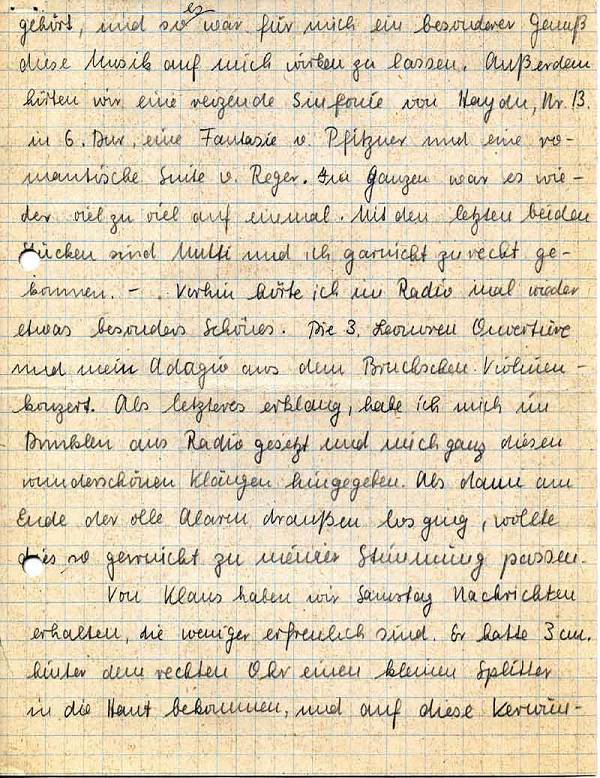 gehört, und so es war für mich ein besonderer Genuß
diese Musik auf mich wirken zu lassen. Außerdem
hörten wir eine reizende Sinfonie von Haydn, Nr. 13.
in G. Dur, eine Fantasie v. Pfitzner und eine ro-
mantische Suite v. Reger. Im Ganzen war es wie-
der viel zu viel auf einmal. Mit den letzten beiden
Stücken sind Mutti und ich garnicht zurecht ge-
kommen. - . Vorhin hörte ich im Radio mal wieder
etwas besonders Schönes. Die 3. Leonoren Ouvertüre
und mein Adagio aus dem Bruchschen Violinen-
konzert. Als letzteres erklang, habe ich mich im
Dunklen ans Radio gesetzt und mich ganz diesen
wunderschönen Klängen hingegeben. Als dann am
Ende der olle Alarm draußen los ging, wollte
dies so garnicht zu meiner Stimmung passen.
Von Klaus haben wir Samstag Nachrichten
erhalten, die weniger erfreulich sind. Er hatte 3 cm.
hinter dem rechten Ohr einen kleinen Splitter
in die Haut bekommen, und auf diese Verwun-